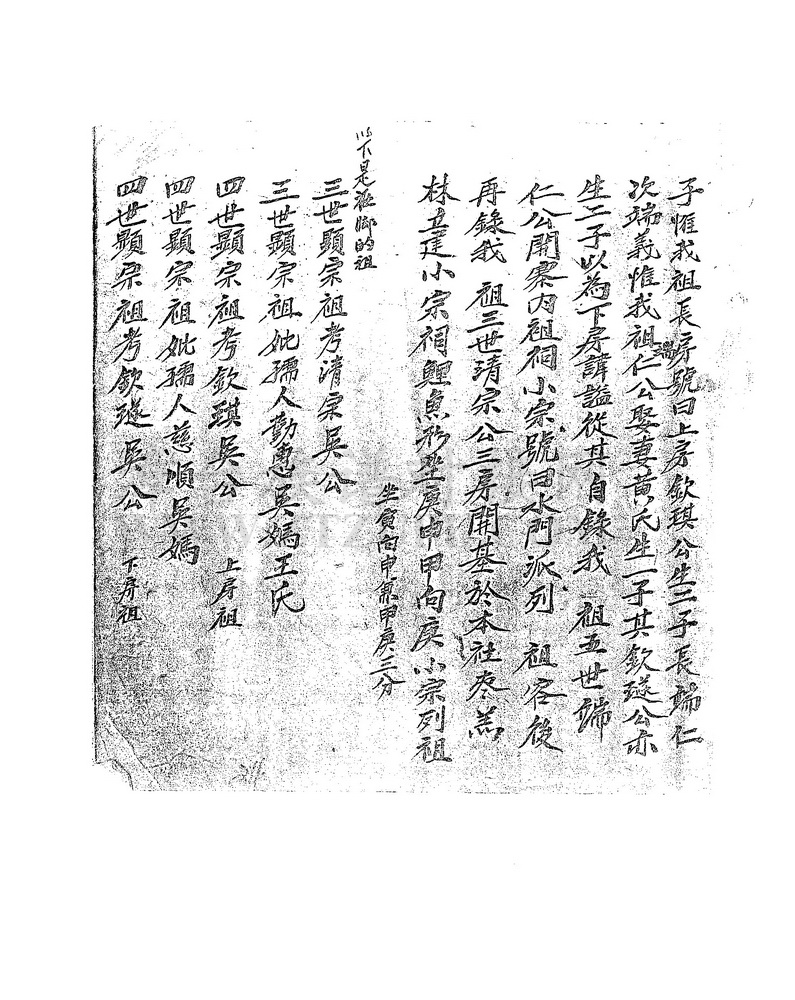 子惟我祖長房號曰上房欽琪公生二子長端仁
次端義惟我祖端仁公娶妻黃氏生一子其欽璲公亦
生二子以為下房諱謚從其自錄我 祖五世端
仁公開寨內祖祠小宗號曰水門派列 祖客後
再錄我 祖三世清宗公三房開基於本社
林立建小宗祠鯉魚形坐庚申甲向庚小宗列祖
坐寅向申兼甲庚三分
以下是 的祖
三世顯宗祖考清宗吳公
三世顯宗祖妣孺人勤惠吳媽王氏
四世顯宗祖考欽琪吳公 上房祖
四世顯宗祖妣孺人慈順吳媽
四世顯宗祖考欽璲吳公 下房祖